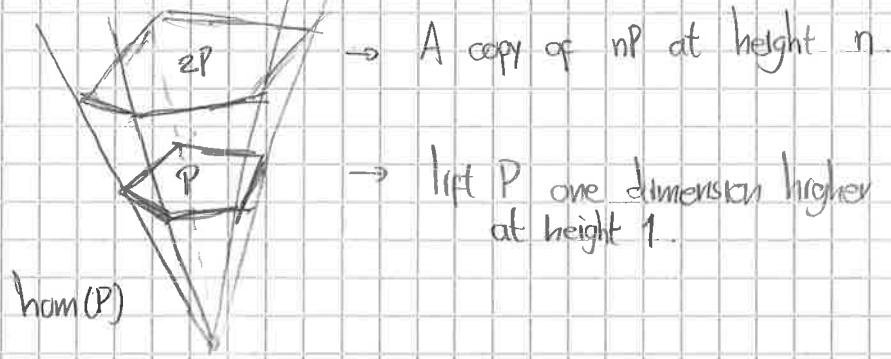 2P → A copy of nP at height n.
P → lift P one dimension higher
at height 1.
hom(P)